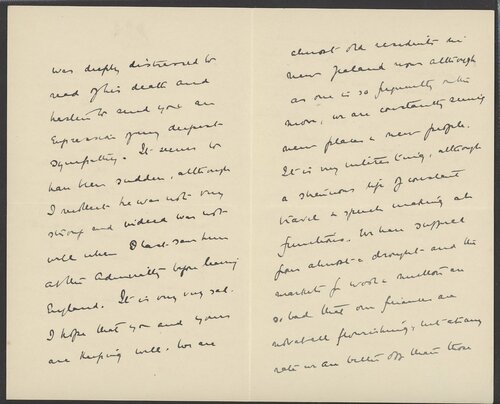 was deeply distressed to
read of his death and
hasten to send you an
expression of my deepest
sympathy. It seems to
have been sudden, although
I recollect he was not very
strong and indeed was not
well when I last saw him
at the Admiralty before leaving
England. It is very very sad.
I hope that you and yours
are keeping well. We are
almost old residents in
New Zealand now although
as one is so frequently on the
move, we are constantly seeing
new places & new people.
It is very interesting, although
a strenuous life of constant
travel & speech making at
functions. We have suffered
from almost a drought and the
markets for wool & mutton are
so bad that our finances are
not at all flourishing, but at any
rate we are better off than those